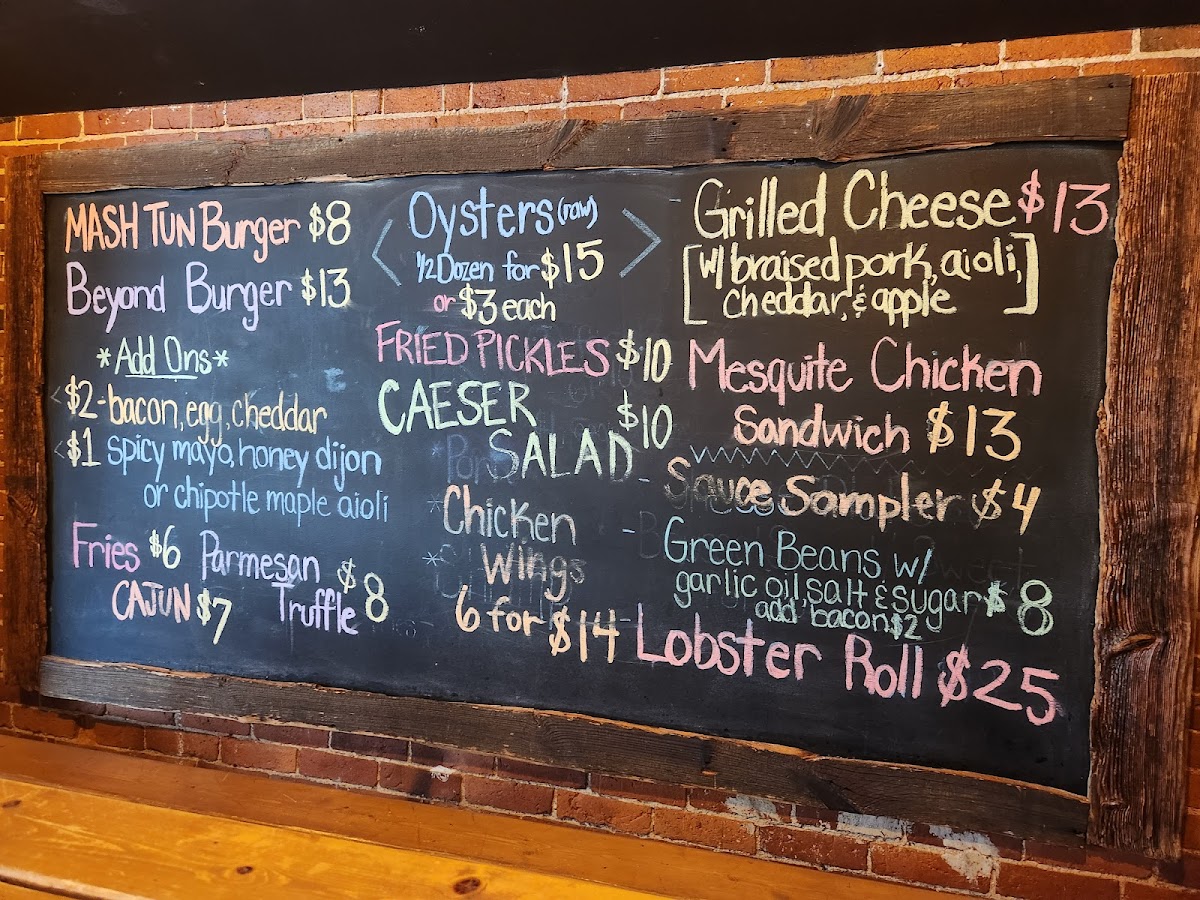 MASH TUN Burger $8
Beyond Burger $13
*Add Ons*
<$2-bacon, egg, cheddar
<$1 spicy mayo, honey dijon
or chipotle maple aioli
Fries $6
CAJUN $7
Parmesan
Truffle $8
< Oysters (raw) >
1/2 Dozen for $15
or $3 each
FRIED PICKLES $10
CAESER
SALAD $10
Chicken
Wings
6 for $14
Grilled Cheese $13
[w/ braised pork, aioli,
cheddar, & apple]
Mesquite Chicken
Sandwich $13
Sauce Sampler $4
Green Beans w/
garlic oil, salt & sugar $8
add bacon $2
Lobster Roll $25